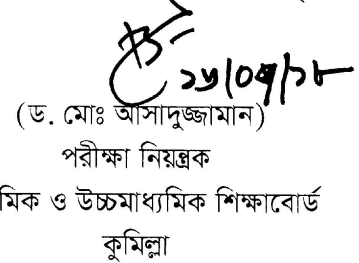 (ড. মোঃ আসাদুজ্জামান)
পরীক্ষা নিয়ন্ত্রক
মিক ও উচ্চমাধ্যমিক শিক্ষাবোর্ড
কুমিল্লা